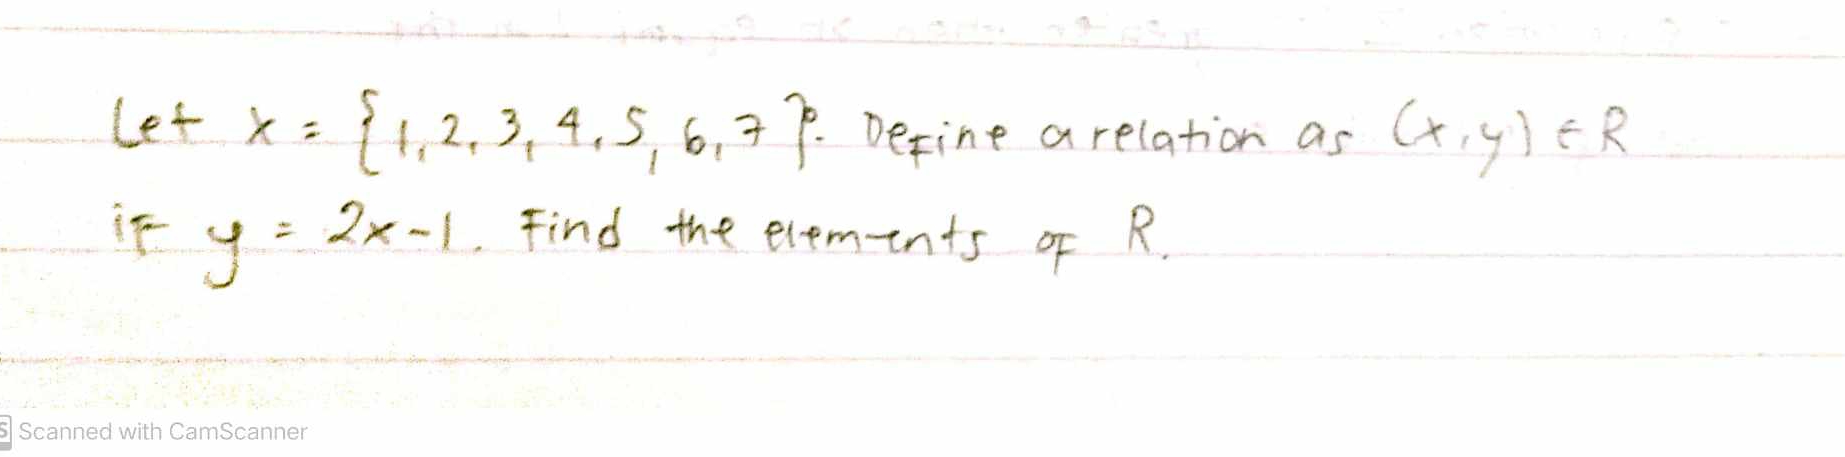 Let x = {1, 2, 3, 4, 5, 6, 7}. Define a relation as (x, y) ∈ R
if y = 2x - 1. Find the elements of R.
Scanned with CamScanner